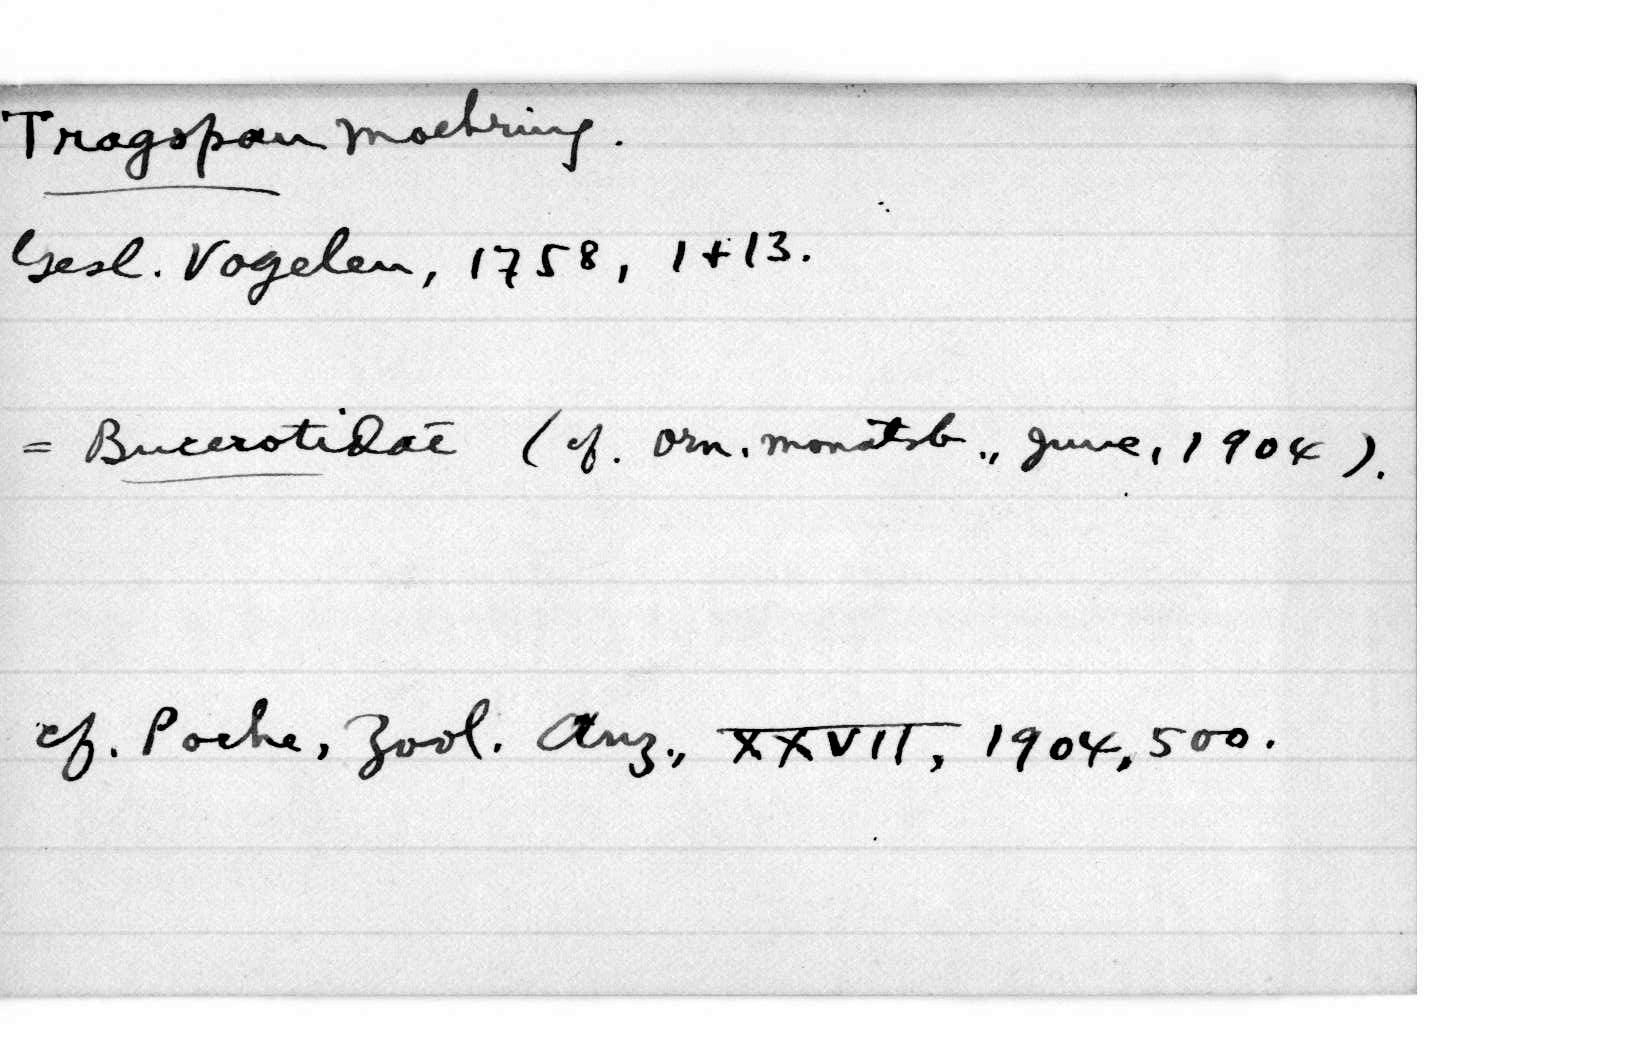 Tragopan Moehring.
Gesl. Vogelen, 1758, 1+13.
= Bucerotidae (cf. Orn. Monatsb., June, 1904).
cf. Poche, Zool. Anz., XXVII, 1904, 500.